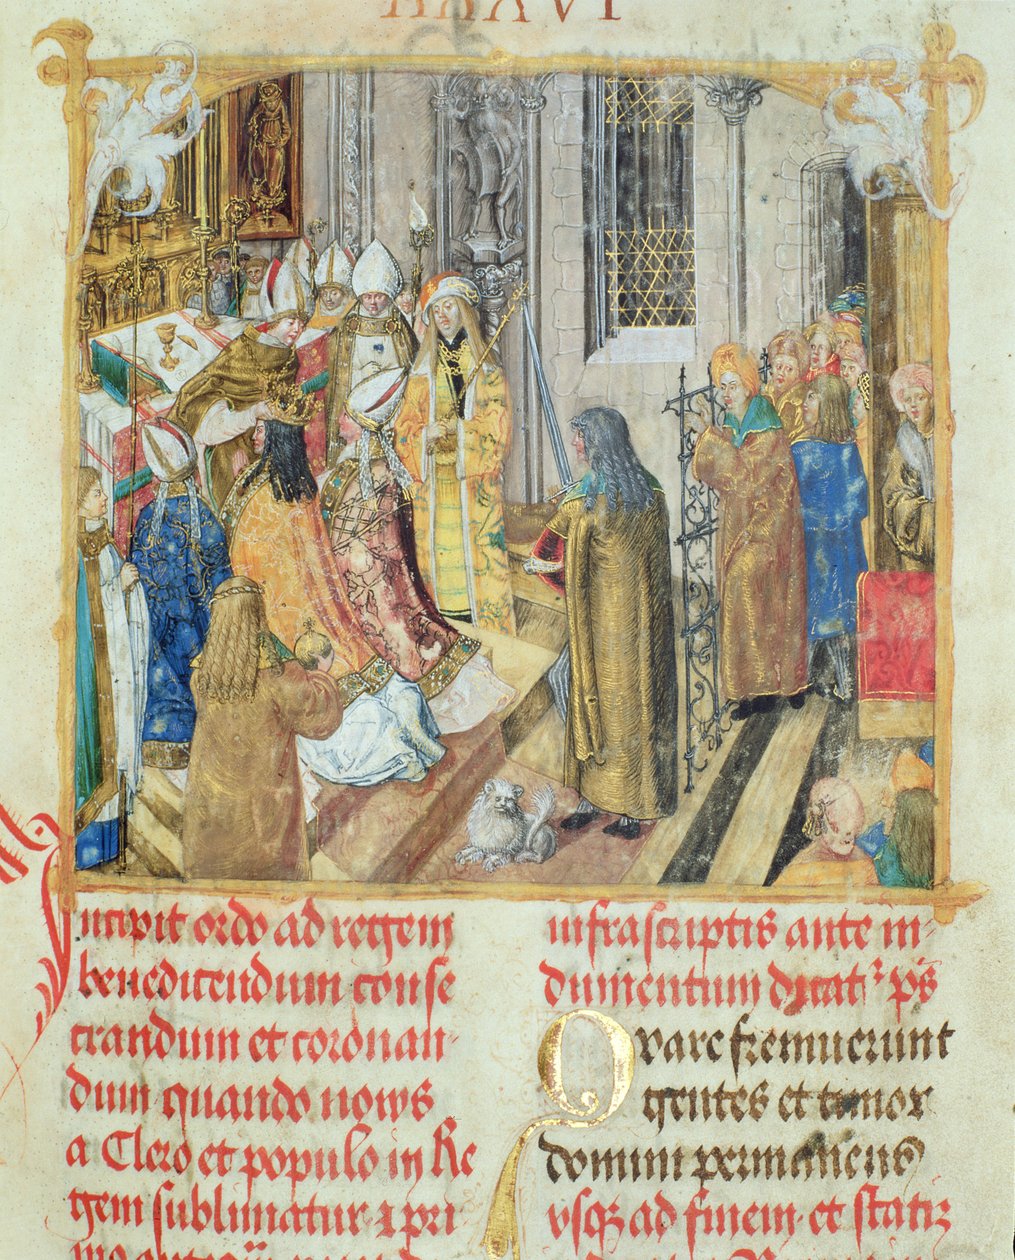 XXXVI
Incipit ordo ad regem
benedicendum conse
crandum et coronan-
dum quando novus
a Clero et populo in Re
gem sublimatur. Et pri
infrascriptis ante in-
dumentum dicat' ps
Quare fremuerunt
gentes et timor
domini permanens
usque ad finem. et statur